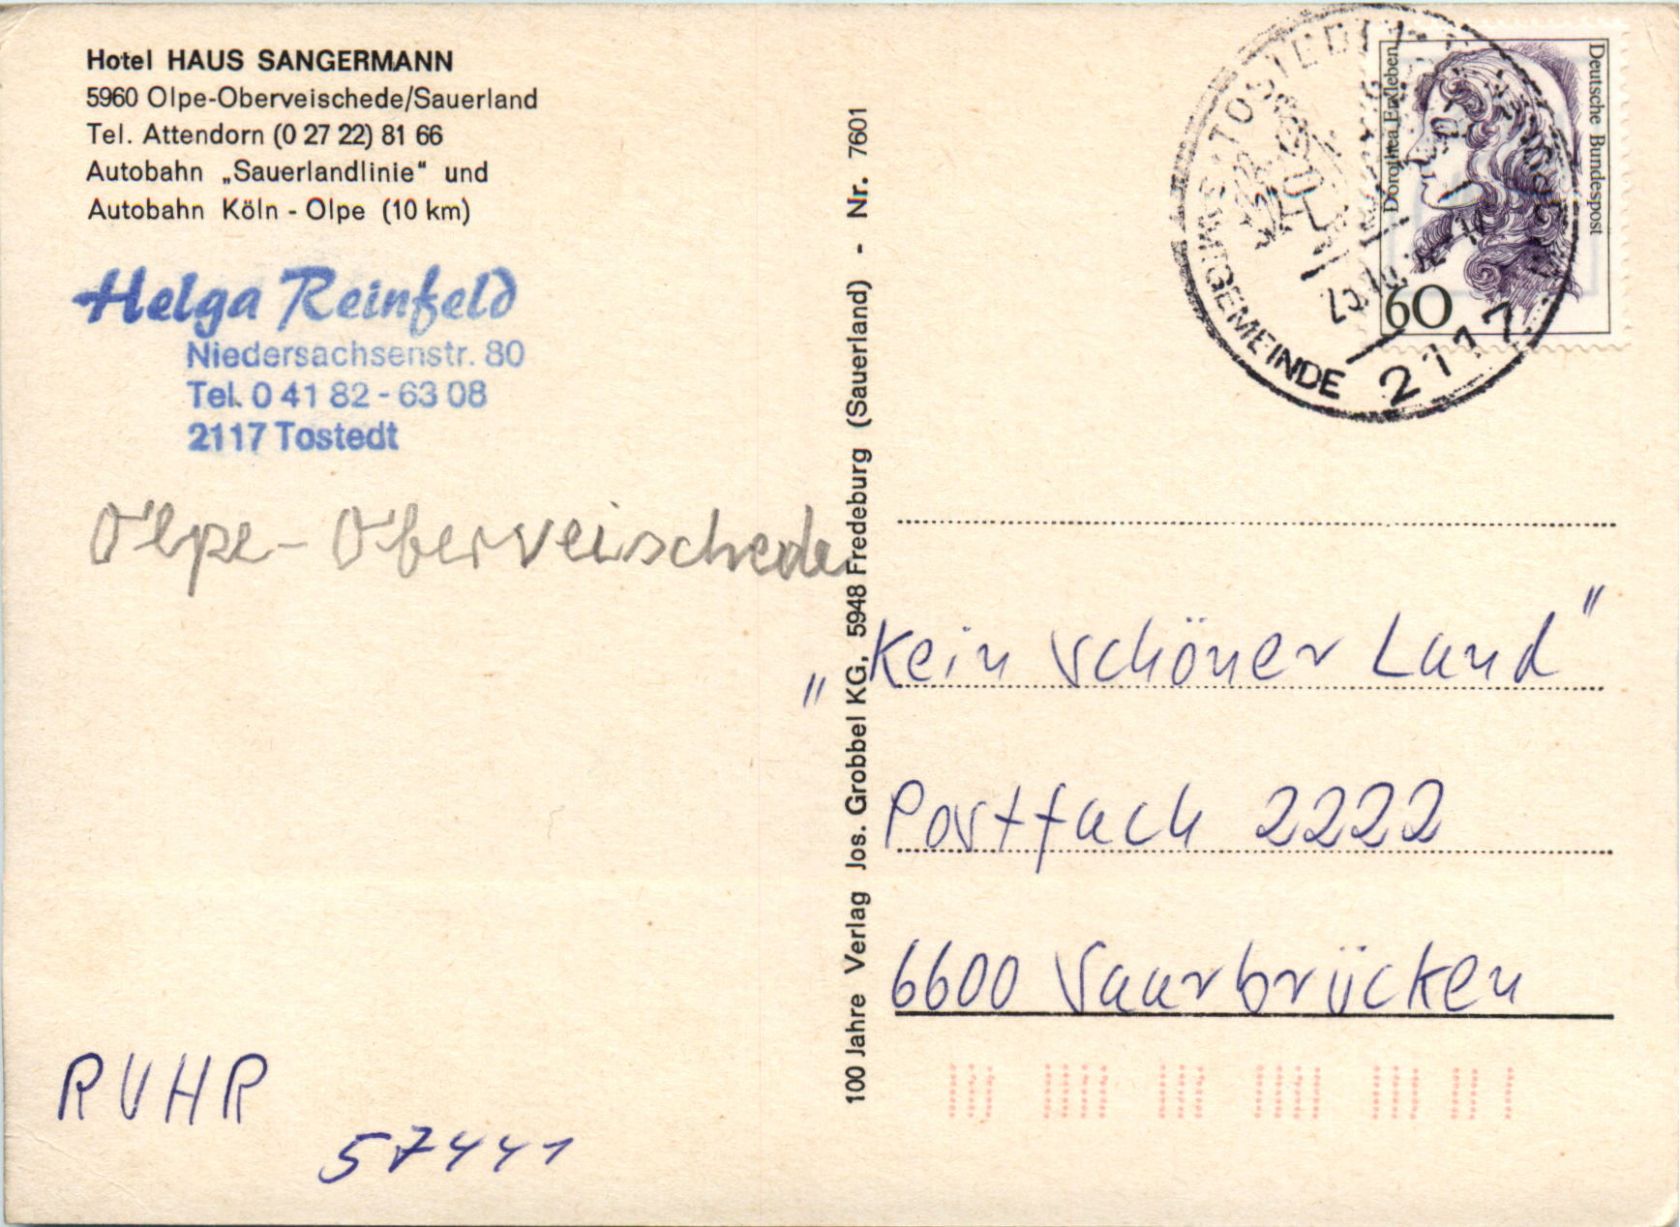 Hotel HAUS SANGERMANN
5960 Olpe-Oberveischede/Sauerland
Tel. Attendorn (0 27 22) 81 66
Autobahn „Sauerlandlinie“ und
Autobahn Köln - Olpe (10 km)
Helga Reinfeld
Niedersachsenstr. 80
Tel. 0 41 82 - 63 08
2117 Tostedt
Olpe-Oberveischede
RUHR
57441
100 Jahre Verlag Jos. Grobbel KG, 5948 Fredeburg (Sauerland) - Nr. 7601
TOSTEDT
GEMEINDE 2117
Dorothea Erxleben
Deutsche Bundespost
60
„Kein schöner Land“
Postfach 2222
6600 Saarbrücken